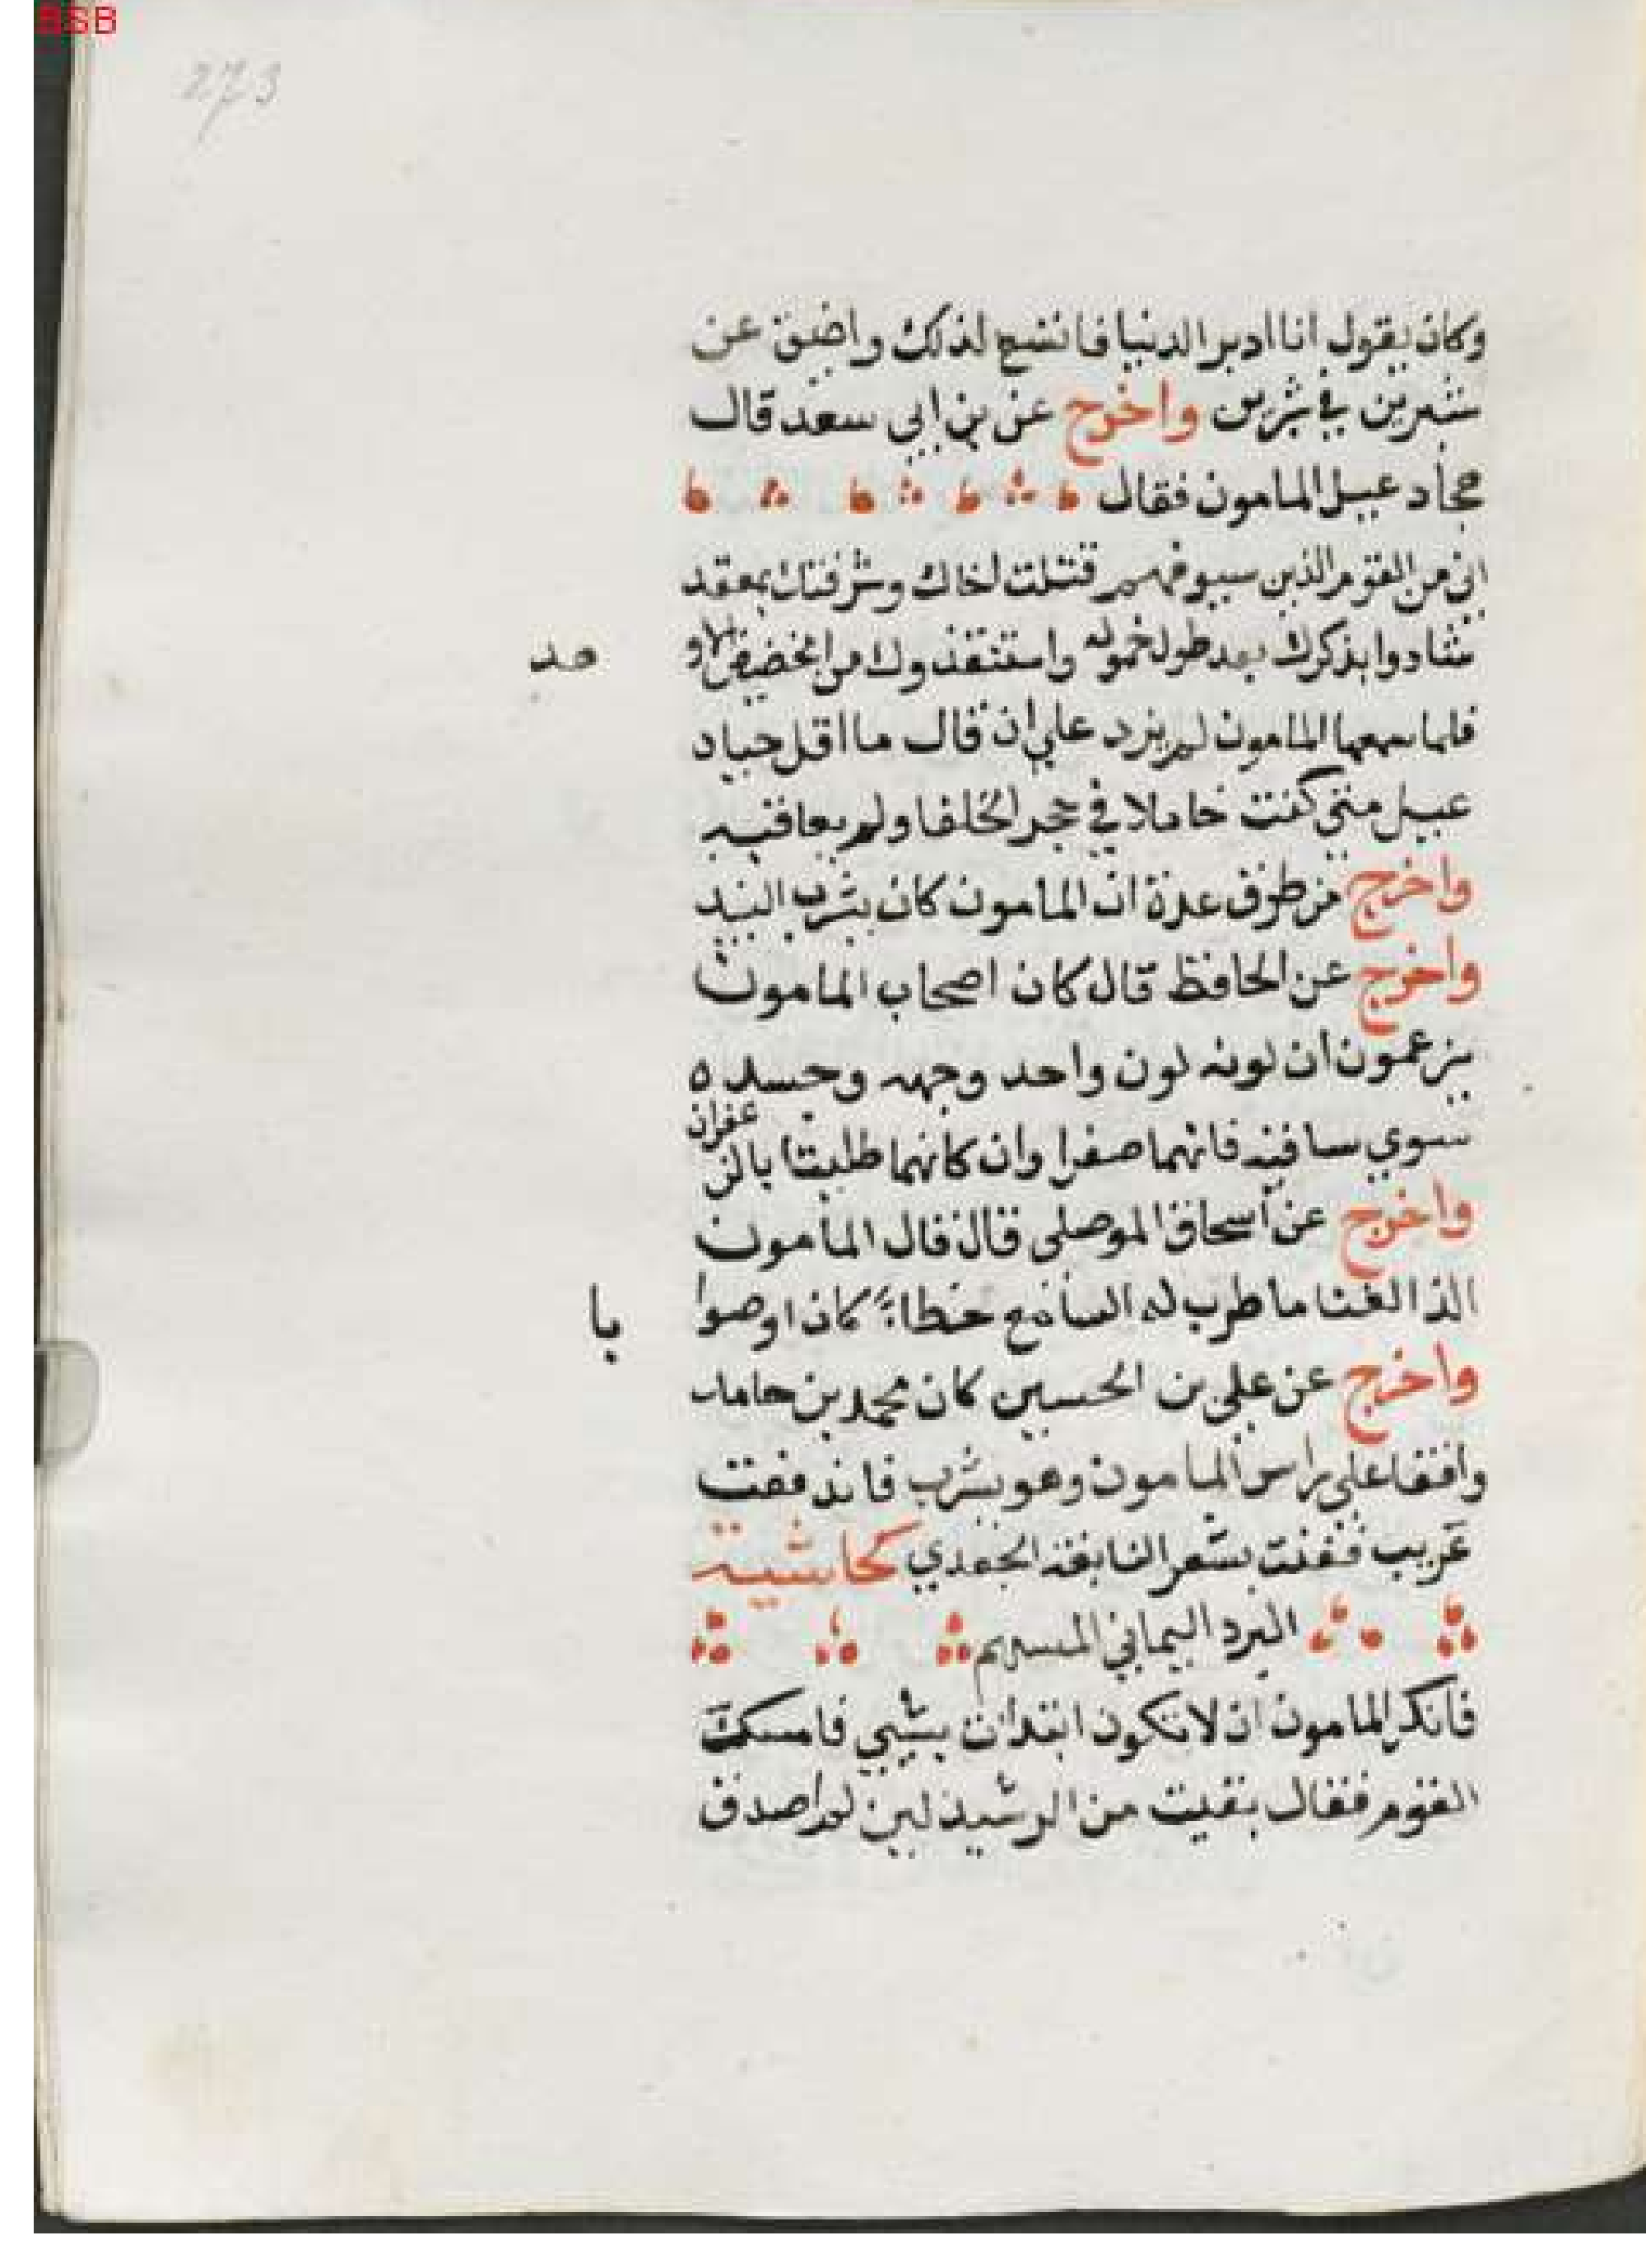 BSB
273
وكان يقول انا ادبر الدنيا فاتسع لذلك واضيق عن
شبرين في شبرين واخرج عن بن ابي سعد قال
هجا دعبل المامون فقال
اني من القوم الذين سيوفهم قتلت اخاك وشرفتك بمقعد
شادوا بذكرك بعد طول خموله واستنقذوك من الحضيض الاو
هد
فلما سمعها المامون لم يزد على ان قال ما اقل حيا د
عبل متى كنت خاملا في حجر الخلفا ولم يعاقبه
واخرج من طرق عدة ان المامون كان يشرب النبيد
واخرج عن الحافظ قال كان اصحاب المامون
يزعمون ان لونه لون واحد وجهه وجسده
سوي ساقيه فانهما صفرا وان كانهما طليتا بالز
عفران
واخرج عن اسحاق الموصلى قال قال المامون
الذ الغنا ما طرب له السامع خطاء كان او صوا
با
واخرج عن علي بن الحسين كان محمد بن حامد
واقفا على راس المامون وهو يشرب فاندفعت
عريب فغنت بشعر النابغة الجعدي كحاشية
البرد اليماني المسهم
فانكر المامون ان لا تكون ابتدات بشيي فامسك
القوم فقال نفيت من الرشيد لين لم اصدق